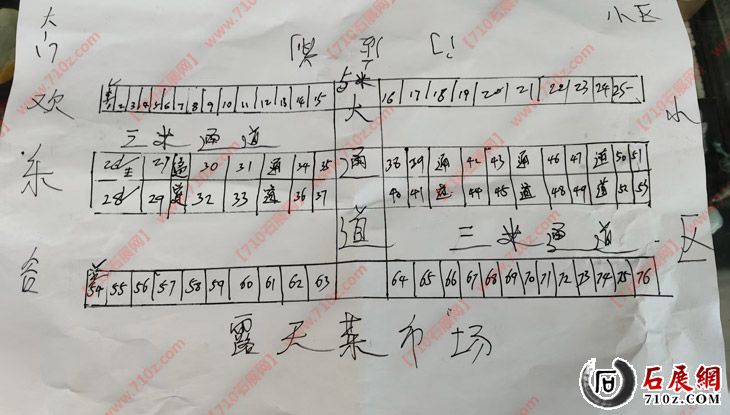 大门
小区
欢乐谷
1 2 3 4 5 6 7 8 9 10 11 12 13 14 15
5米大通道
16 17 18 19 20 21 22 23 24 25
三米通道
小区
26 27 通 30 31 通 34 35
38 39 通 42 43 通 46 47 通 50 51
28 29 道 32 33 道 36 37
40 41 道 44 45 道 48 49 道 52 53
三米通道
54 55 56 57 58 59 60 61 62 63
64 65 66 67 68 69 70 71 72 73 74 75 76
露天菜市场
【710石展网】
www.710z.com
石展網
710z.com